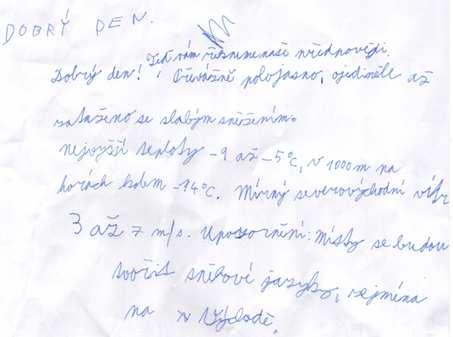 DOBRÝ DEN.
Dobrý den! Teď vám řekneme naše předpovědi.
Převážně polojasno, ojediněle až
zataženo se slabým sněžením.
nejvyšší teploty -9 až -5°C, v 1000m na
horách kolem -14°C. Mírný severovýchodní vítr
3 až 7 m/s. Upozornění: Místy se budou
tvořit sněhové jazyky, zejména
na Výhodě.